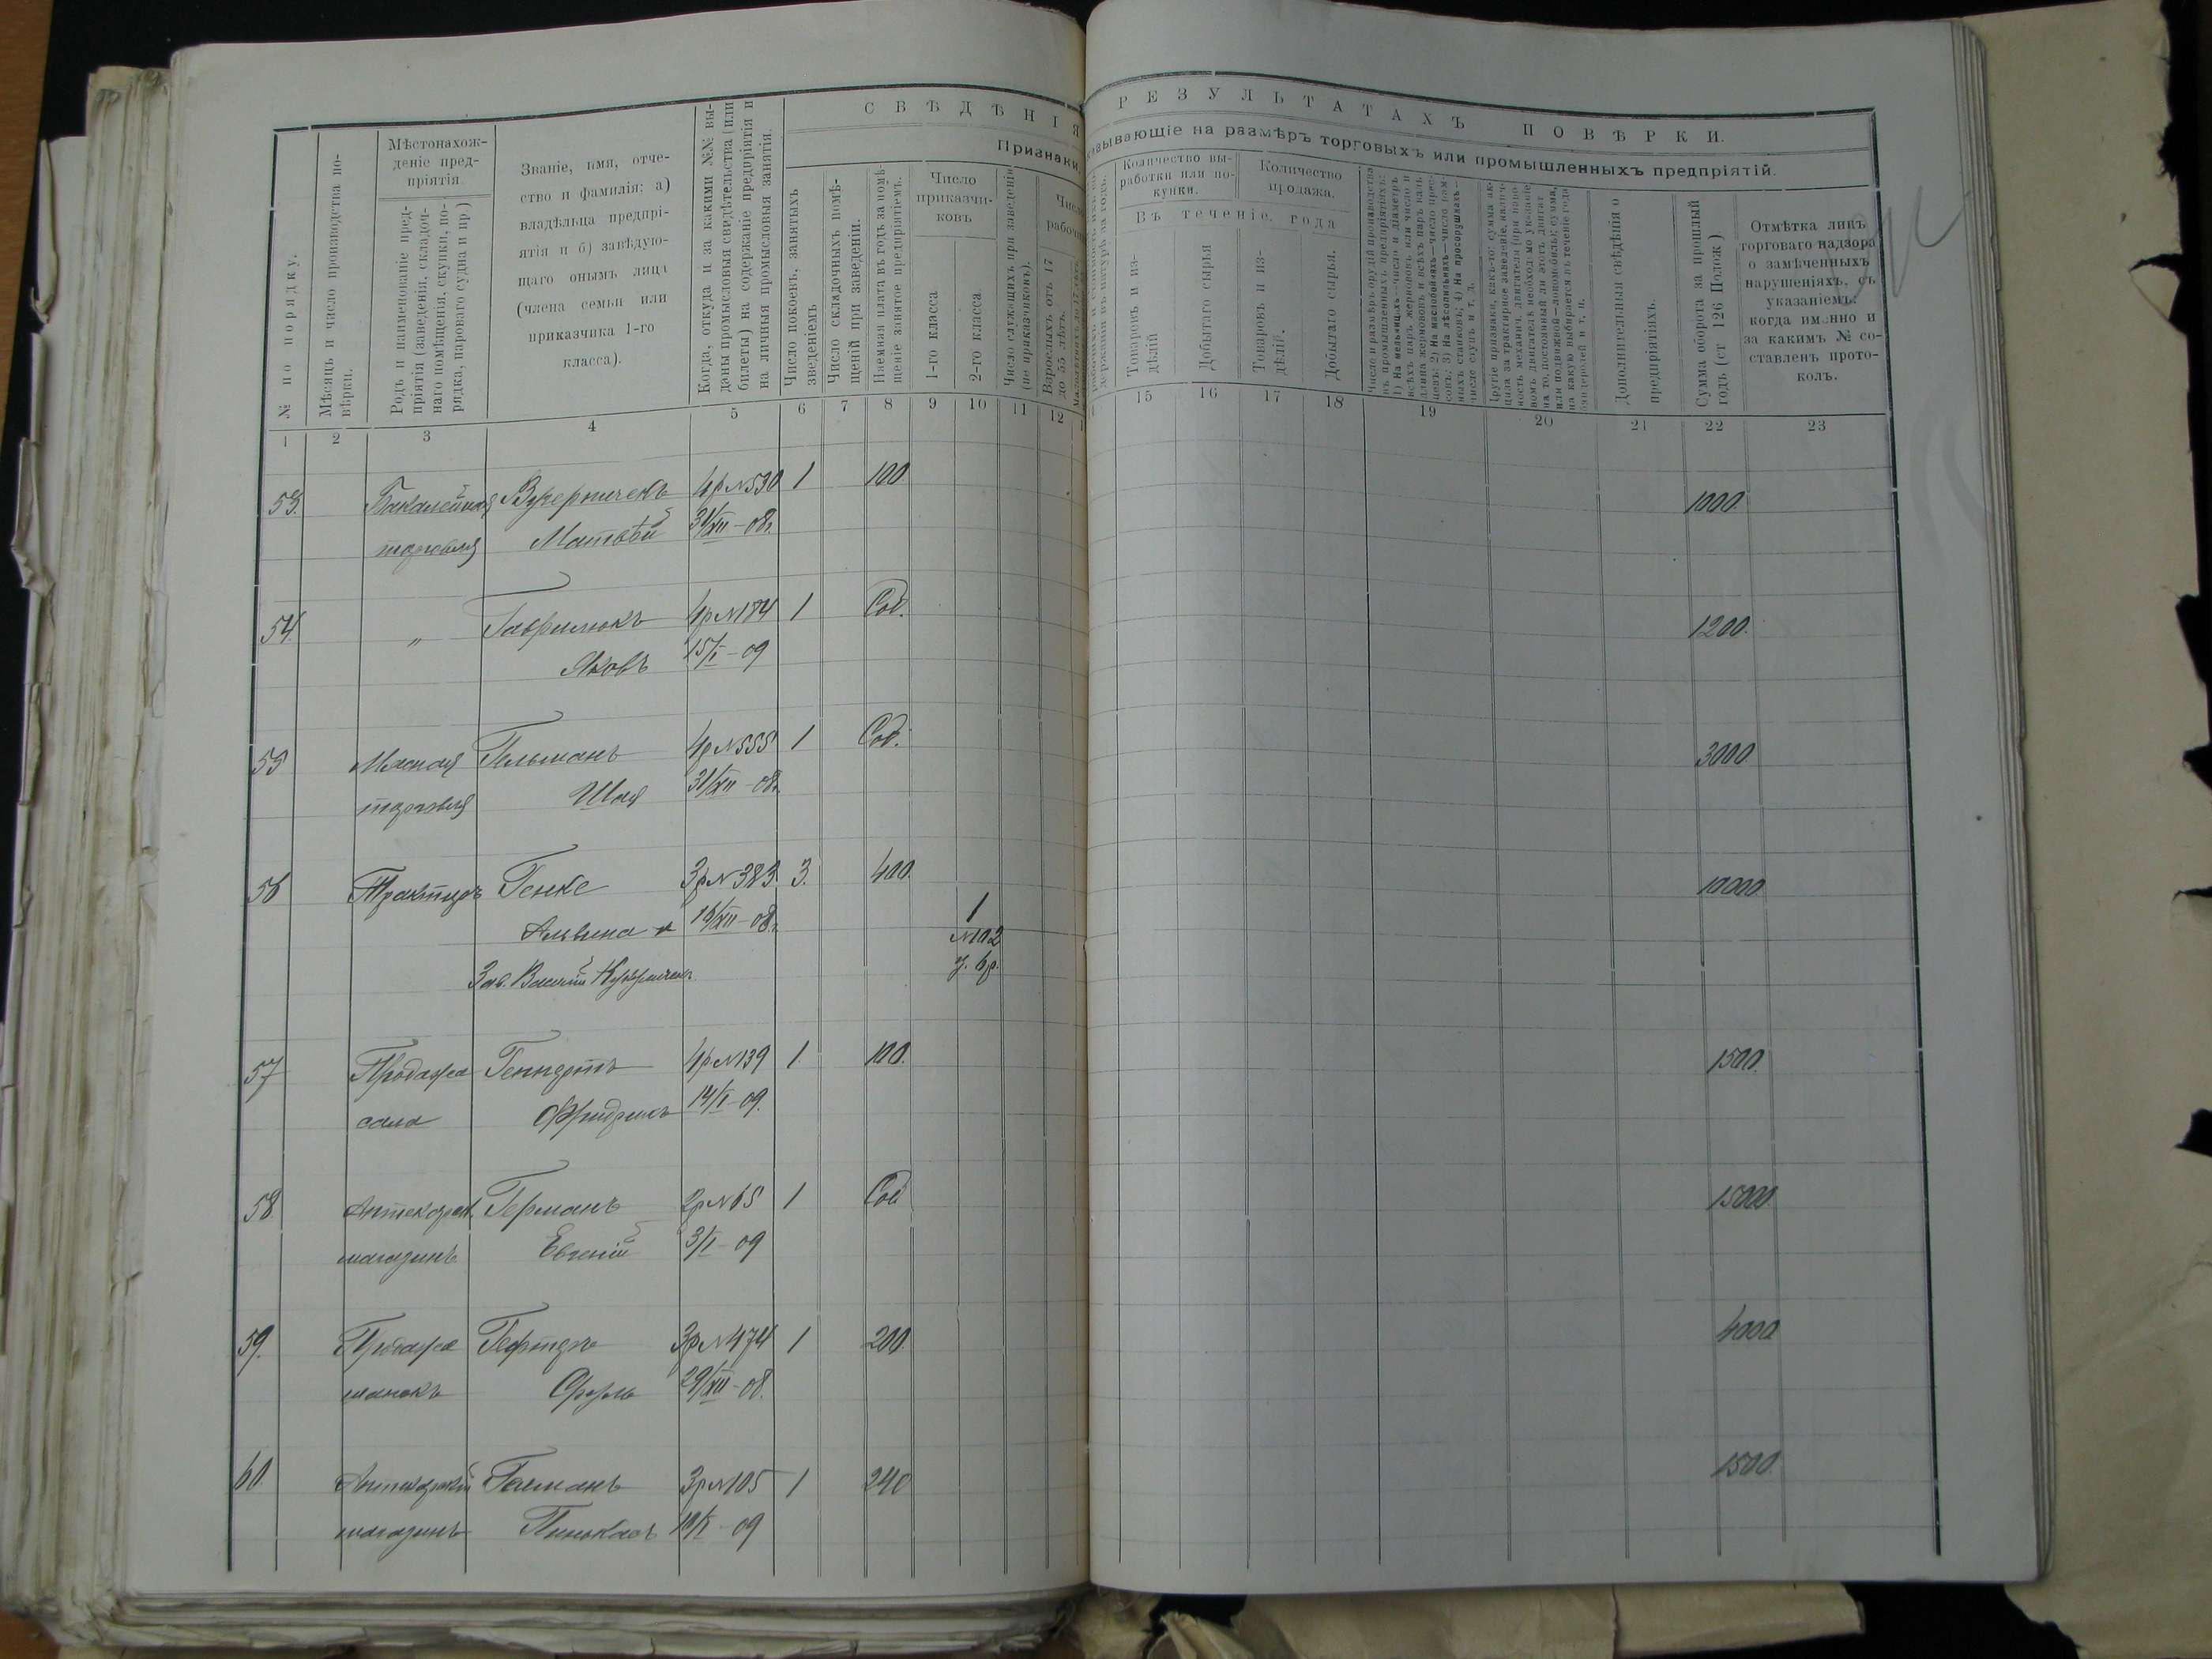 СВѢДѢНІЯ
РЕЗУЛЬТАТАХЪ ПОВѢРКИ.
Признаки
указывающіе на размѣръ торговыхъ или промышленныхъ предпріятій.
№ по порядку.
Мѣсяцъ и число производства повѣрки.
Мѣстонахож-
деніе пред-
пріятія.
Родъ и наименованіе пред-
пріятія (заведенія, складоч-
наго помѣщенія, скупки, по-
рядка, парового судна и пр.)
Званіе, имя, отче-
ство и фамилія: а)
владѣльца предпрі-
ятія и б) завѣдую-
щаго онымъ лица
(члена семьи или
приказчика 1-го
класса).
Когда, откуда и за какими №№ вы-
даны промысловыя свидѣтельства (или
билеты) на содержаніе предпріятія и
на личныя промысловыя занятія.
Число покоевъ, занятыхъ
зведеніемъ
Число складочныхъ помѣ-
щеній при заведеніи.
Наемная плата въ годъ за помѣ-
щеніе занятое предпріятіемъ.
Число
приказчи-
ковъ
1-го класса
2-го класса
Число служащихъ при заведеніи
(не приказчиковъ).
Число
рабочихъ
Взрослыхъ отъ 17
до 55 лѣтъ.
Количество вы-
работки или по-
купки.
Количество
продажа.
Въ теченіе года
Товаровъ и из-
дѣлій
Добытаго сырья
Товаровъ и из-
дѣлій.
Добытаго сырья.
Число и размѣръ орудій производства
въ промышленныхъ предпріятіяхъ:
1) На мельницахъ—число и діаметръ
всѣхъ паръ жернововъ или число и
длина жернововъ и всѣхъ паръ валь
цовъ; 2) На маслобойняхъ—число прес-
совъ; 3) На лѣсопильняхъ—число рам-
ныхъ станковъ; 4) На просорушкахъ—
число ступъ и т. д.
Дополнительныя свѣдѣнія о
предпріятіяхъ.
Сумма оборота за прошлый
годъ (ст 126 Полож)
Отмѣтка лицъ
торговаго надзора
о замѣченныхъ
нарушеніяхъ, съ
указаніемъ:
когда именно и
за какимъ № со-
ставленъ прото-
колъ.
1 2 3 4 5 6 7 8 9 10 11 12 15 16 17 18 19 20 21 22 23
53. Бакалейная 4р №530 1 100 1000.
торговля Матвѣй 31/XII—08г.
54. „ Гаврилюкъ 4р №184 1 Соб. 1200.
Яковъ 15/I—09
55 Мясная Гельманъ 4р №555 1 Соб. 3000
торговля Шая 31/XII—08г.
56 Трактиръ Генке 3р №383. 3. 400. 10000
Альвина 18/XII—08г. 1
№102
Зав. Василій
57 Продажа 4р №139 1. 100. 1500.
сала Фридрихъ 14/I—09.
58. Аптекарск. Германъ 2р №65 1 Соб 15000.
магазинъ. Евгеній 3/I—09
59. Продажа 3р №474 1 200. 4000
шапокъ 29/XII—08.
60. Аптекарскій 3р №105 1 240 1500.
магазинъ Пинькасъ 10/I—09